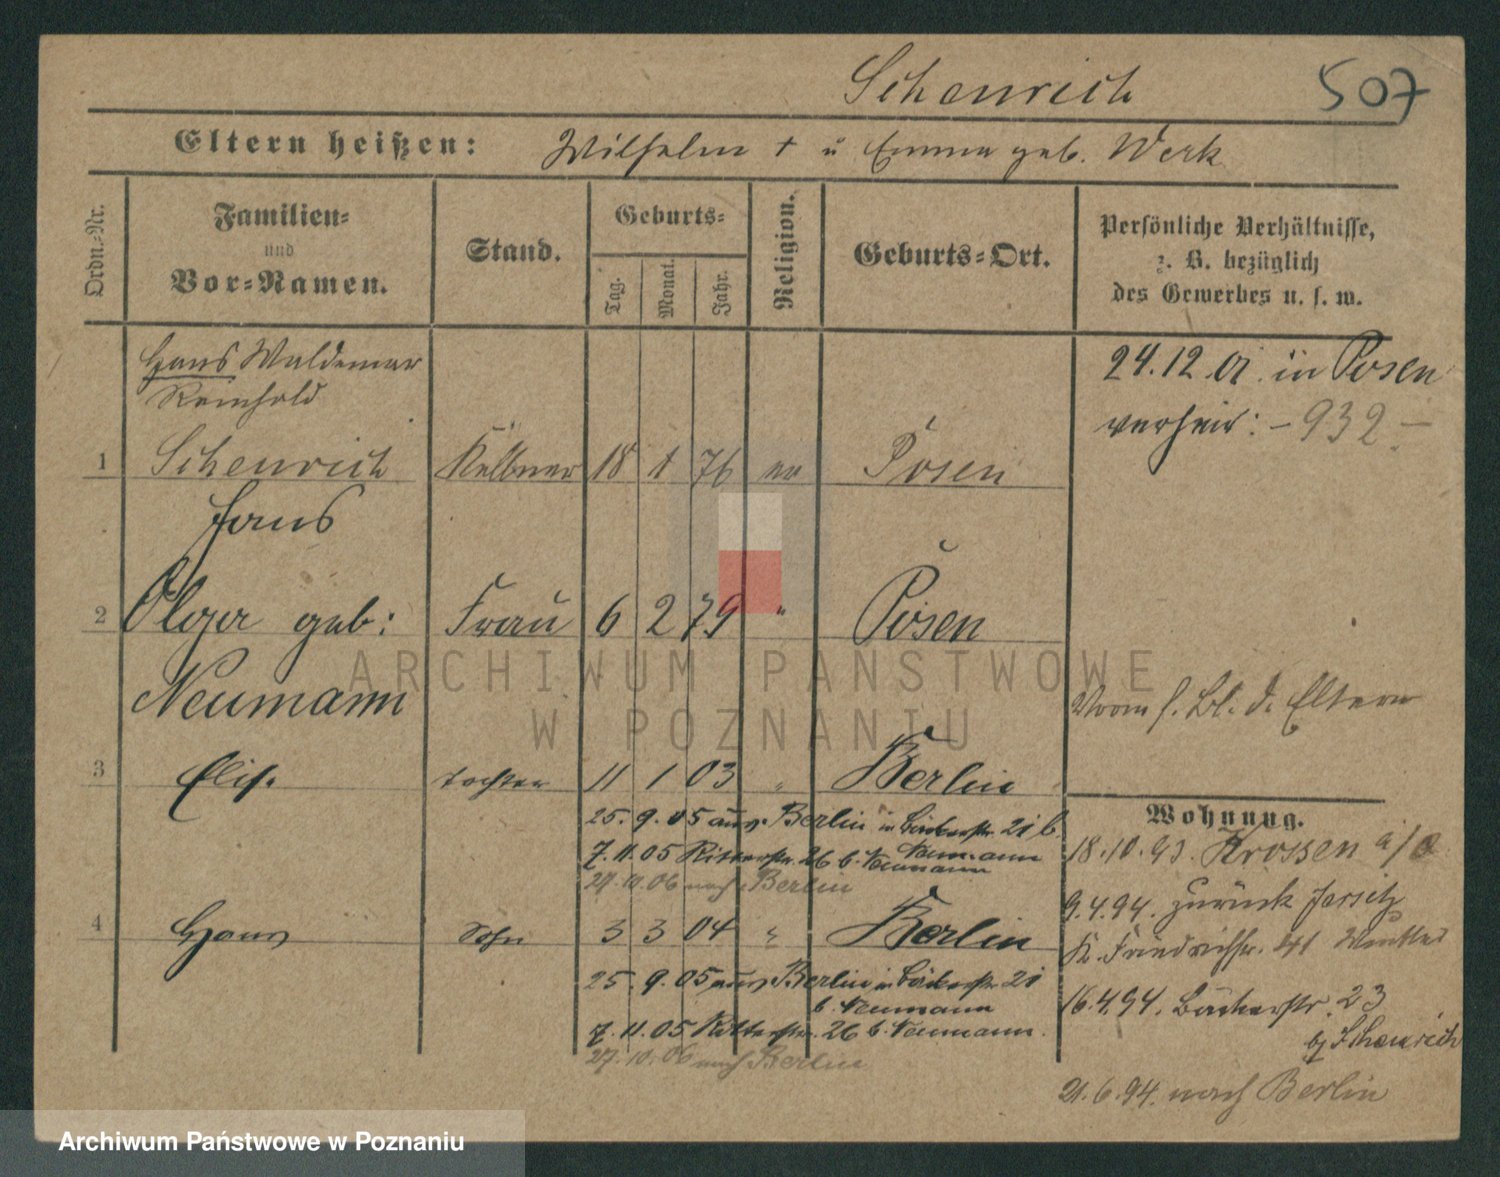 Schenrich 507
Eltern heißen: Wilhelm † u Emma geb. Werk
Ordn.-Nr.
Familien-
und
Vor-Namen.
Stand.
Geburts-
Tag.
Monat.
Jahr.
Religion.
Geburts-Ort.
Persönliche Verhältnisse,
z. B. bezüglich
des Gewerbes u. s. w.
Hans Waldemar
Reinhold
1 Schenrich Kellner 18 1 76 ev Posen
24.12.01. in Posen
verheir: - 932 -
Hans
2 Olga geb: Frau 6 2 79 " Posen
Neumann
Vorm s. Bl. d. Eltern
3 Elis. tochter 11 1 03 " Berlin
25. 9. 05 aus Berlin in Bäckerstr. 21 b.
Neumann
7. 11. 05 Ritterstr. 26 b. Neumann
27. 10. 06 nach Berlin
4 Hans Sohn 3 3 04 " Berlin
25. 9. 05 aus Berlin in Bäckerstr. 21
b. Neumann
7. 11. 05 Ritterstr. 26 b. Neumann.
27. 10. 06 nach Berlin
Wohnung.
18.10.93. Krossen a/O
9.4.94. zurück Jersitz
K. Friedrichstr. 41
16.4.94. Bäckerstr. 23
b/ Schenrich
21.6.94. nach Berlin
ARCHIWUM PAŃSTWOWE
W POZNANIU
Archiwum Państwowe w Poznaniu